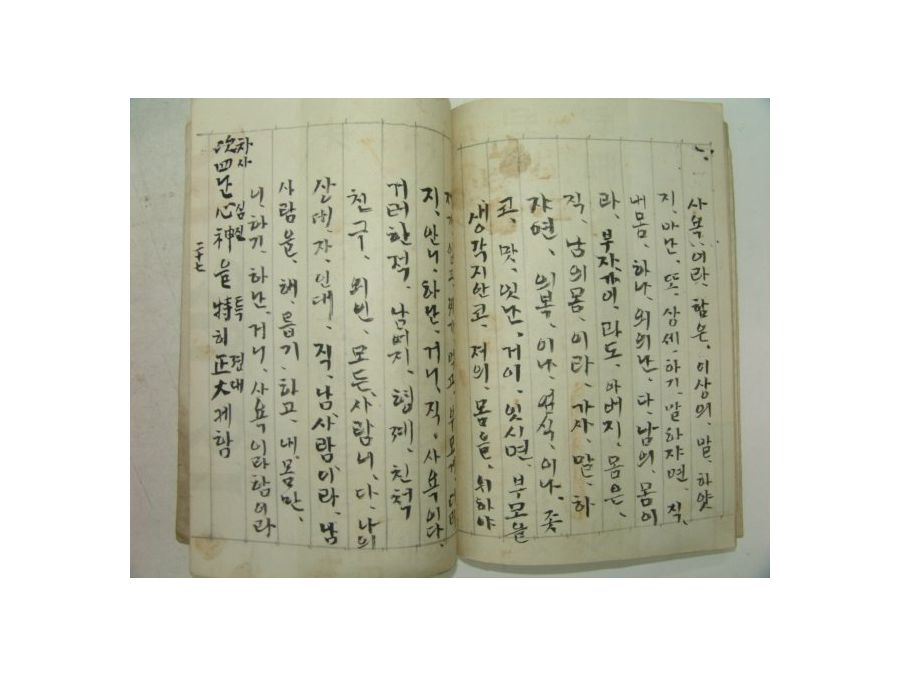 사욕,이라, 함은, 이상의, 말, 하얏
지, 마난, 또, 상세,하기, 말하쟈면, 직,
내몸, 하나, 외의난, 다, 남의, 몸이
라, 부자간이, 라도, 아버지, 몸은,
직, 남의몸, 이라, 가사, 말, 하
쟈면, 의복, 이나, 음식, 이나, 좃
코, 맛, 잇난, 거이, 잇시면, 부모을
생각지안코, 저의, 몸을, 위하야
지, 안니, 하난, 거니, 직, 사욕이다,
거러한적, 남머지, 형제, 친척
친구, 외인, 모든,사람니, 다, 나의
상대,자,인대, 직, 남,사람이라, 남
사람을, 해,롭기, 하고, 내,몸만,
니,하기, 하난, 거니, 사욕이라함이라
次四난心神을特히正大게함
차사 심신 특 정대
二十七